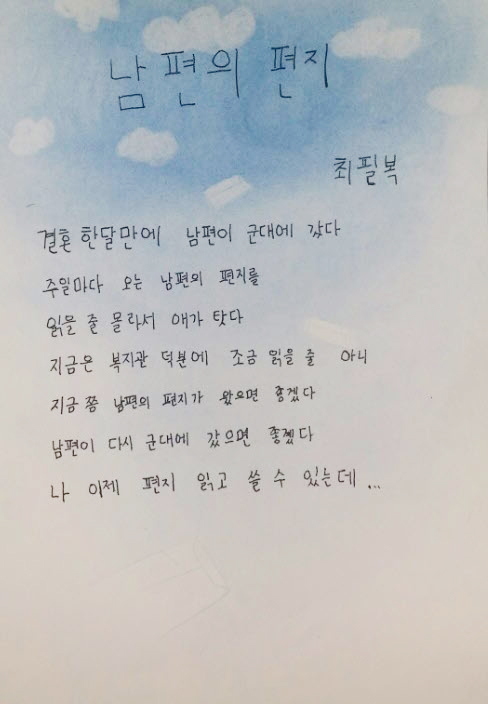 남편의 편지
최필복
결혼 한달만에 남편이 군대에 갔다
주일마다 오는 남편의 편지를
읽을 줄 몰라서 애가 탓다
지금은 복지관 덕분에 조금 읽을 줄 아니
지금쯤 남편의 편지가 왔으면 좋겠다
남편이 다시 군대에 갔으면 좋겠다
나 이제 편지 읽고 쓸 수 있는데...